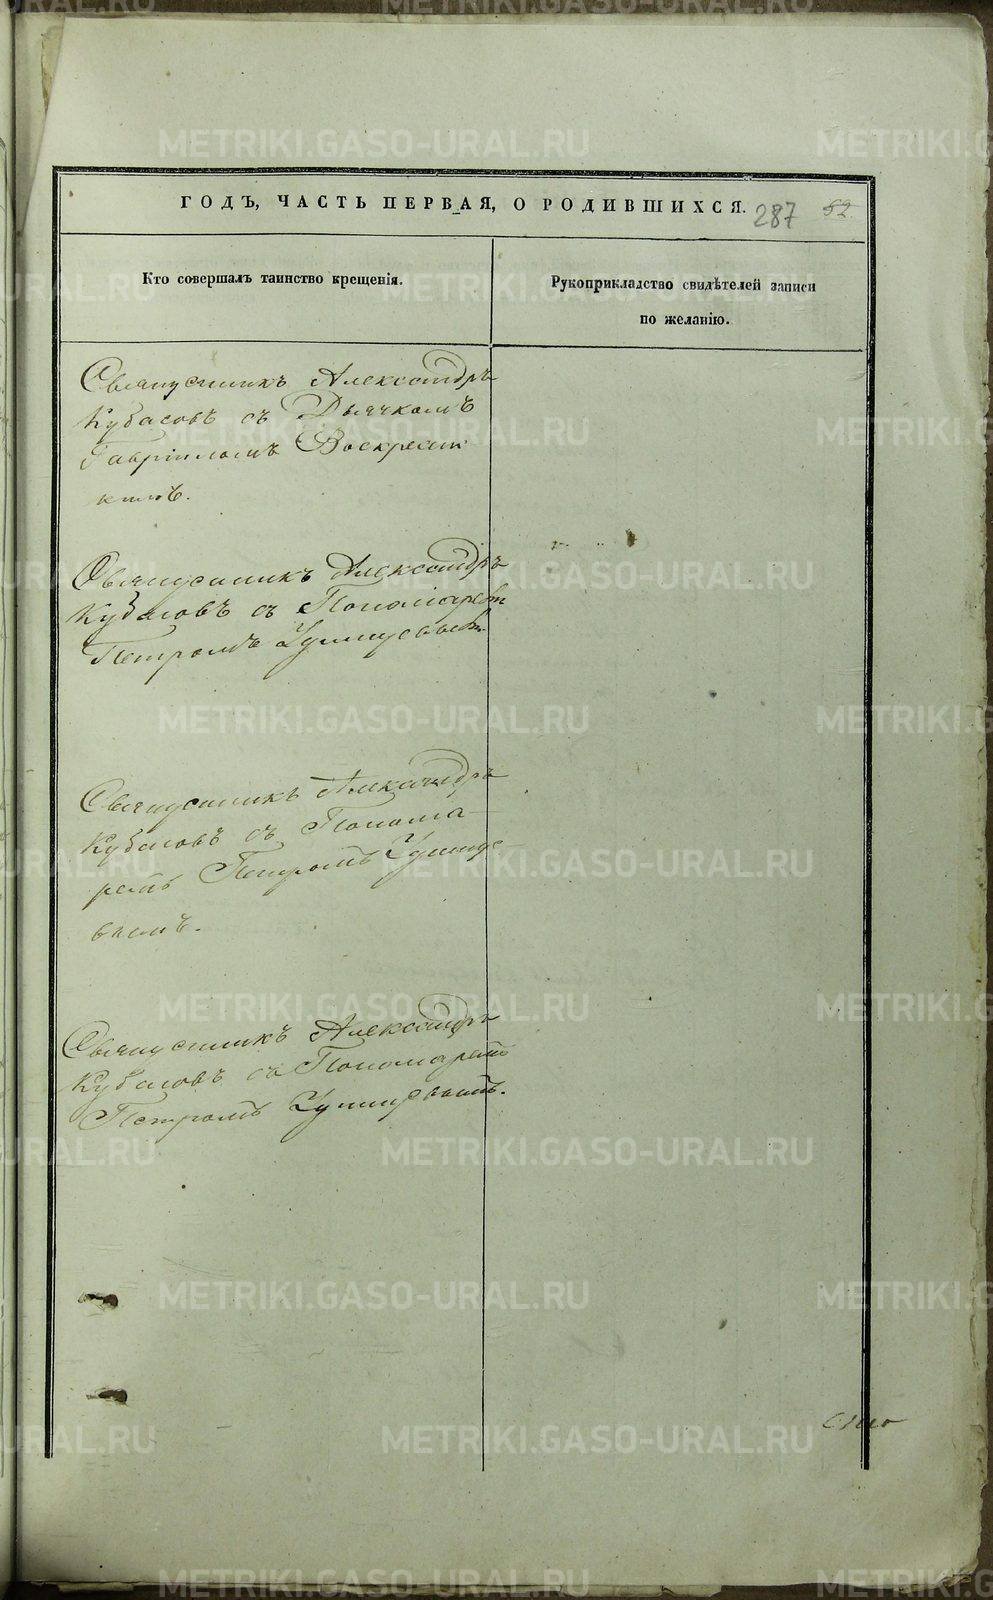 ГОДЪ, ЧАСТЬ ПЕРВАЯ, О РОДИВШИХСЯ. 287 52.
Кто совершалъ таинство крещенія.
Рукоприкладство свидѣтелей записи
по желанію.
Священникъ Александръ
Кубасовъ съ Дьячкомъ
Гавріиломъ Воскресен
Священникъ Александръ
Кубасовъ съ Пономаремъ
Петромъ
Священникъ Александръ
Кубасовъ съ Понома-
ремъ Петромъ
Священникъ Александръ
Кубасовъ съ Пономаремъ
Петромъ
METRIKI.GASO-URAL.RU